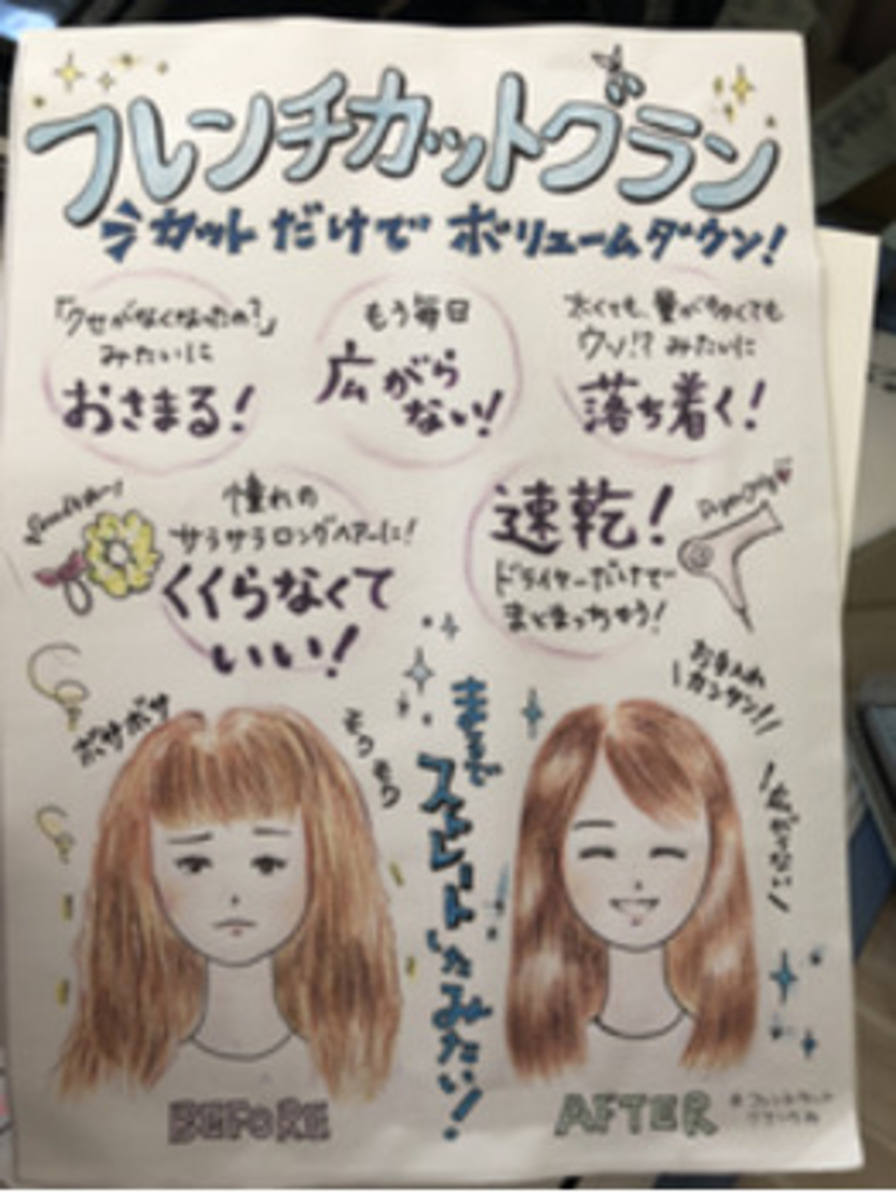 フレンチカットグラン
カットだけで ボリュームダウン!
「クセがなくなったの?」
みたいに
おさまる!
もう毎日
広がら
ない!
太くても、量が多くても
ウソ!? みたいに
落ち着く!
憧れの
サラサラロングヘアーに!
くくらなくて
いい!
速乾!
ドライヤーだけで
まとまっちゃう!
お手入れ
カンタン!!
ボサボサ
モワ
モワ
まるで
ストレート
したみたい!
広がらない
BEFORE
AFTER